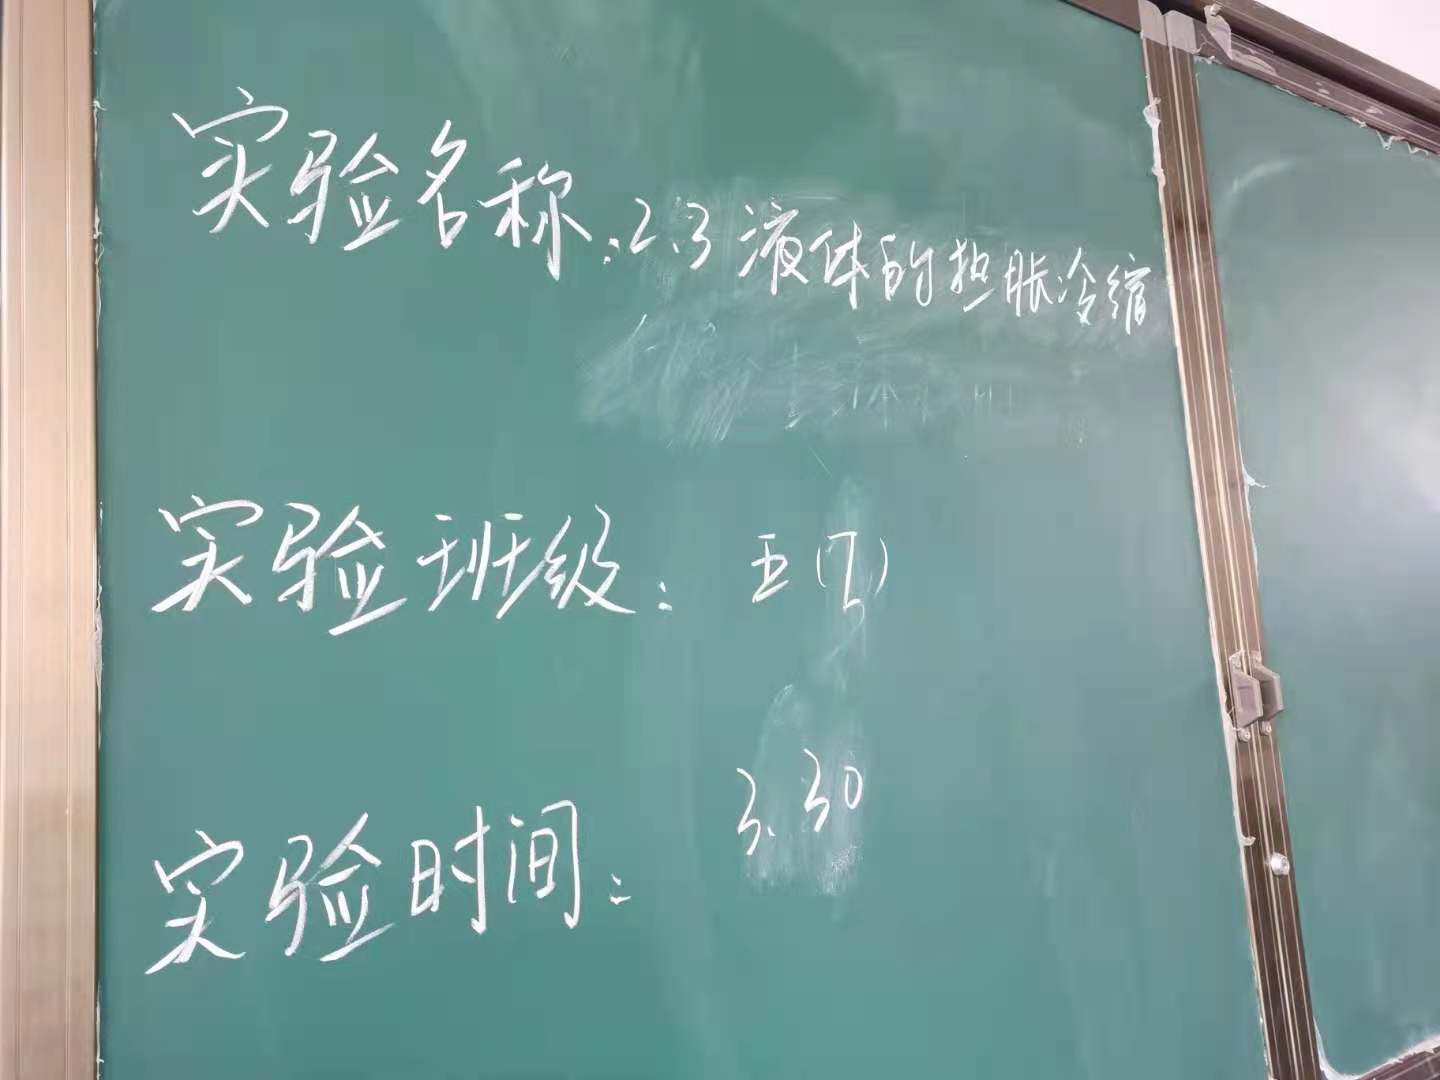 实验名称:2.3 液体的热胀冷缩
实验班级: 五()
实验时间: 3.30